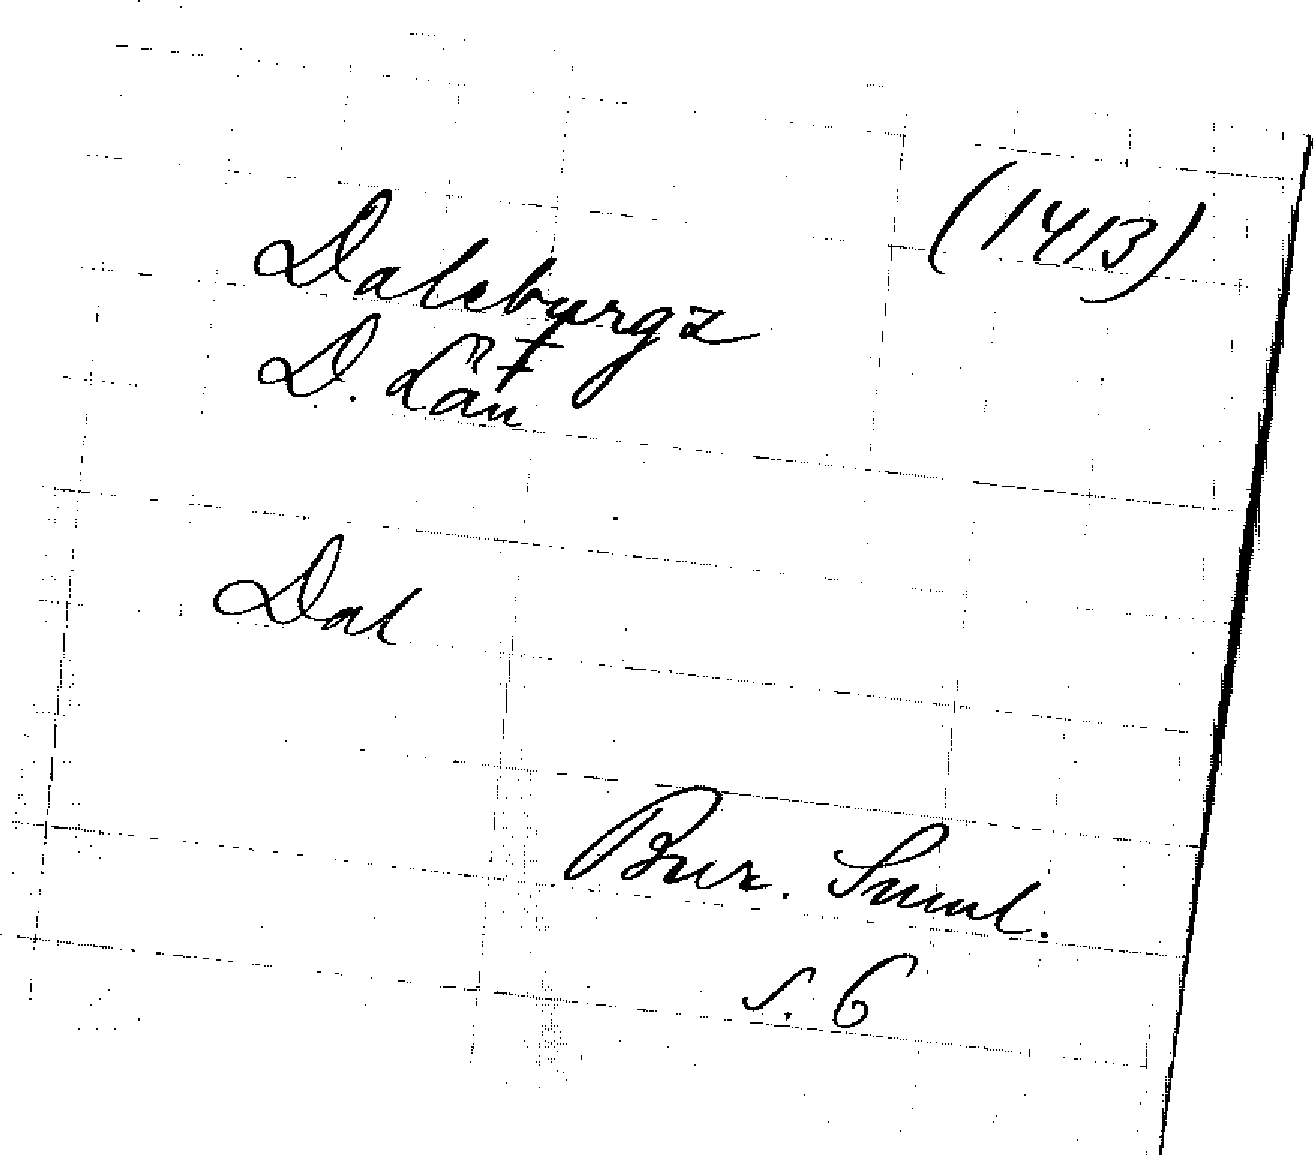 (1413)
Daleburgz
D. Län
Dal
Bur. Suml.
s. 6